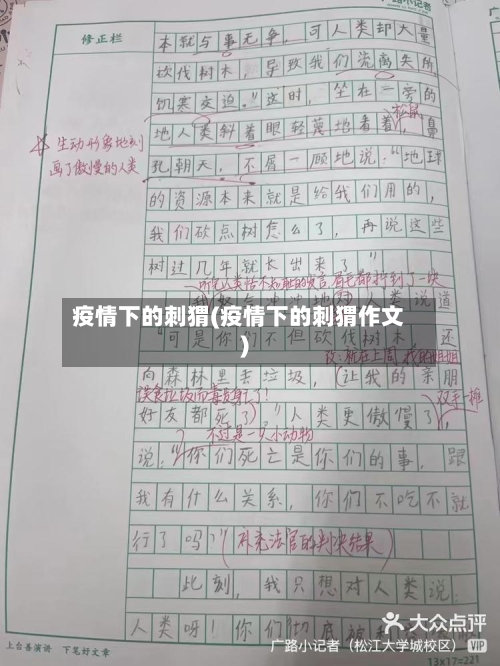 修正栏
本就与事无争，可人类却大量
砍伐树木，导致我们流离失所
饥寒交迫。"这时，坐在一旁的
松鼠
地人类斜着眼轻蔑地看着，鼻
生动形象地刻
画了傲慢的人类
孔朝天，不屑一顾地说："地球
的资源本来就是给我们用的，
我们砍点树怎么了，再说这些
树过几年就长出来了"
疫情下的刺猬(疫情下的刺猬作文
)
对人类说道
可是你们不但砍伐树木 还
改：就在上周
向森林里丢垃圾，(让我的亲朋
误食垃圾而
双手一摊
好友都死了)"人类更傲慢了，
不过是一只小动物
说："你们死亡是你们的事，跟
我有什么关系，你们不吃不就
行了吗？"(补充法官的判决结果)
此刻，我只想对人类说：
人类呀！你们
上台善演讲 下笔好文章
大众点评
广路小记者（松江大学城校区） VIP
13x17=221